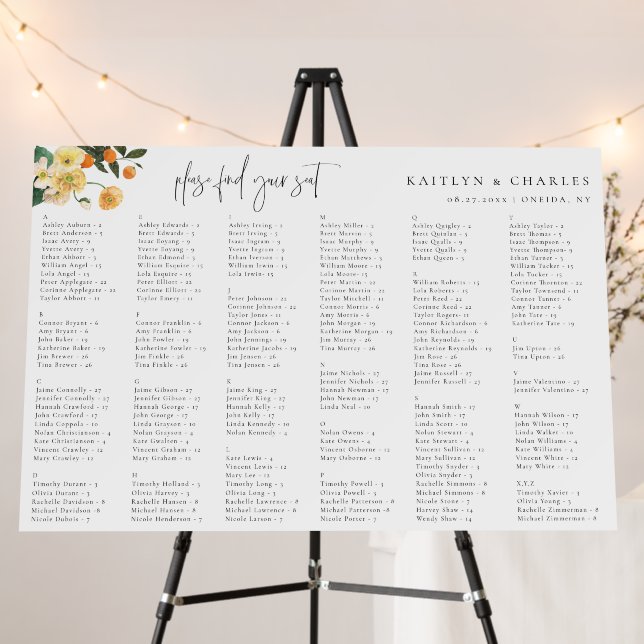 please find your seat
KAITLYN & CHARLES
08.27.20XX | ONEIDA, NY
A
Ashley Auburn - 2
Brett Anderson - 5
Isaac Avery - 9
Yvette Avery - 9
Ethan Abbott - 2
William Angel - 15
Lola Angel - 13
Peter Applegate - 22
Corinne Applegate - 22
Taylor Abbott - 11
B
Connor Bryant - 6
Amy Bryant - 6
John Baker - 19
Katherine Baker - 19
Jim Brewer - 26
Tina Brewer - 26
C
Jaime Connolly - 27
Jennifer Connolly - 27
Hannah Crawford - 17
John Crawford - 17
Linda Coppola - 10
Nolan Christianson - 4
Kate Christianson - 4
Vincent Crawley - 12
Mary Crawley - 12
D
Timothy Durant - 3
Olivia Durant - 3
Rachelle Davidson - 8
Michael Davidson - 8
Nicole Dubois - 7
E
Ashley Edwards - 2
Brett Edwards - 5
Isaac Eoyang - 9
Yvette Eoyang - 9
Ethan Edmond - 2
William Esquire - 15
Lola Esquire - 15
Peter Elliott - 22
Corinne Elliott - 22
Taylor Emery - 11
F
Connor Franklin - 6
Amy Franklin - 6
John Fowler - 19
Katherine Fowler - 19
Jim Finkle - 26
Tina Finkle - 26
G
Jaime Gibson - 27
Jennifer Gibson - 27
Hannah George - 17
John George - 17
Linda Grayson - 10
Nolan Grayson - 4
Kate Gwalton - 4
Vincent Graham - 12
Mary Graham - 12
H
Timothy Holland - 3
Olivia Harvey - 3
Rachelle Hansen - 8
Michael Hansen - 8
Nicole Henderson - 7
I
Ashley Irving - 2
Brett Irving - 5
Isaac Ingram - 9
Yvette Ingram - 9
Ethan Iverson - 2
William Irwin - 13
Lola Irwin - 13
J
Peter Johnson - 22
Corinne Johnson - 22
Taylor Jones - 11
Connor Jackson - 6
Amy Jackson - 6
John Jennings - 19
Katherine Jacobs - 19
Jim Jensen - 26
Tina Jensen - 26
K
Jaime King - 27
Jennifer King - 27
Hannah Kelly - 17
John Kelly - 17
Linda Kennedy - 10
Nolan Kennedy - 4
L
Kate Lewis - 4
Vincent Lewis - 12
Mary Lee - 12
Timothy Long - 3
Olivia Long - 3
Rachelle Lawrence - 8
Michael Lawrence - 8
Nicole Larson - 7
M
Ashley Miller - 2
Brett Marvin - 5
Isaac Murphy - 9
Yvette Murphy - 9
Ethan Matthews - 2
William Moore - 13
Lola Moore - 13
Peter Martin - 22
Corinne Martin - 22
Taylor Mitchell - 11
Connor Morris - 6
Amy Morris - 6
John Morgan - 19
Katherine Morgan - 19
Jim Murray - 26
Tina Murray - 26
N
Jaime Nichols - 27
Jennifer Nichols - 27
Hannah Newman - 17
John Newman - 17
Linda Neal - 10
O
Nolan Owens - 4
Kate Owens - 4
Vincent Osborne - 12
Mary Osborne - 12
P
Timothy Powell - 3
Olivia Powell - 3
Rachelle Patterson - 8
Michael Patterson - 8
Nicole Porter - 7
Q
Ashley Quigley - 2
Brett Quinlan - 5
Isaac Qualls - 9
Yvette Qualls - 9
Ethan Queen - 2
R
William Roberts - 13
Lola Roberts - 13
Peter Reed - 22
Corinne Reed - 22
Taylor Rogers - 11
Connor Richardson - 6
Amy Richardson - 6
John Reynolds - 19
Katherine Reynolds - 19
Jim Rose - 26
Tina Rose - 26
Jaime Russell - 27
Jennifer Russell - 27
S
Hannah Smith - 17
John Smith - 17
Linda Scott - 10
Nolan Stewart - 4
Kate Stewart - 4
Vincent Sullivan - 12
Mary Sullivan - 12
Timothy Snyder - 3
Olivia Snyder - 3
Rachelle Simmons - 8
Michael Simmons - 8
Nicole Stone - 7
Harvey Shaw - 14
Wendy Shaw - 14
T
Ashley Taylor - 2
Brett Thomas - 5
Isaac Thompson - 9
Yvette Thompson - 9
Ethan Turner - 2
William Tucker - 13
Lola Tucker - 13
Corinne Thornton - 22
Taylor Townsend - 11
Connor Tanner - 6
Amy Tanner - 6
John Tate - 19
Katherine Tate - 19
U
Jim Upton - 26
Tina Upton - 26
V
Jaime Valentino - 27
Jennifer Valentino - 27
W
Hannah Wilson - 17
John Wilson - 17
Linda Walker - 10
Nolan Williams - 4
Kate Williams - 4
Vincent White - 12
Mary White - 12
X,Y,Z
Timothy Xavier - 3
Olivia Young - 3
Rachelle Zimmerman - 8
Michael Zimmerman - 8